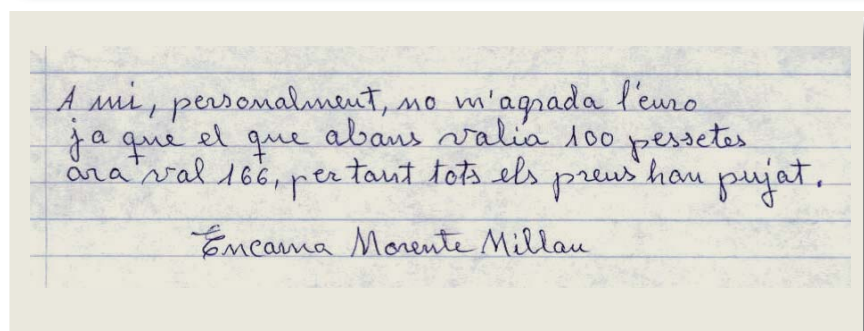 A mi, personalment, no m'agrada l'euro
ja que el que abans valia 100 pessetes
ara val 166, per tant tots els preus han pujat.
Encarna Morente Millan